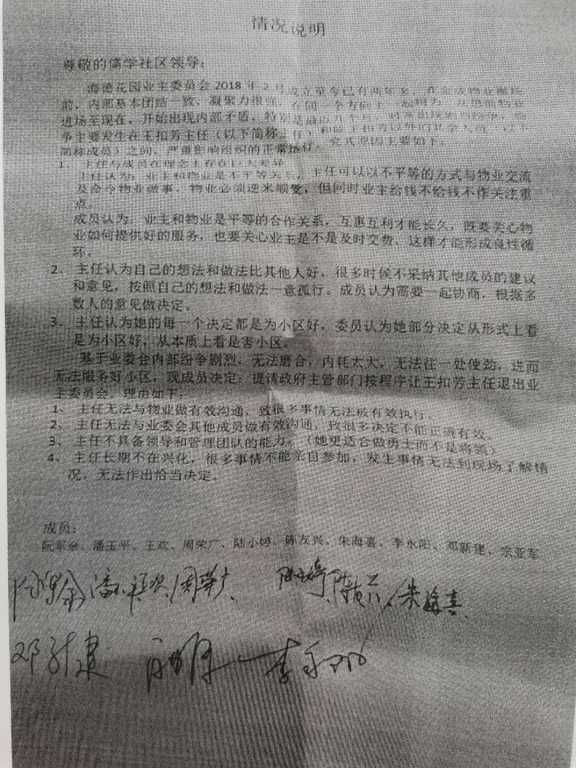 情况说明
尊敬的儒学社区领导：
海德花园业主委员会2018年2月成立至今已有两年多，在
前，内部基本团结一致，凝聚力很强，在同一个方向上一起用力，
进场至现在，开始出现内部矛盾，特别是最近几个月，
争主要发生在王扣芳主任（以下简称主任）和除王扣芳以外的其余人员（以下
简称成员）之间，严重影响组织的正常运行。究其原因主要如下：
1、 主任与成员在理念上存在巨大差异
主任认为：业主和物业是不平等关系，主任可以以不平等的方式与物业交流
及命令物业做事，物业必须逆来顺受，但同时业主给钱不给钱不作关注重
点。
成员认为：业主和物业是平等的合作关系，互惠互利才能长久，既要关心物
业如何提供好的服务，也要关心业主是不是及时交费，这样才能形成良性循
环。
2、 主任认为自己的想法和做法比其他人好，很多时候不采纳其他成员的建议
和意见，按照自己的想法和做法一意孤行。成员认为需要一起协商，根据多
数人的意见做决定。
3、 主任认为她的每一个决定都是为小区好，委员认为她部分决定从形式上看
是为小区好，从本质上看是害小区。
基于业委会内部纷争剧烈，无法磨合，内耗太大，无法往一处使劲，进而
无法服务好小区，现成员决定：提请政府主管部门按程序让王扣芳主任退出业
主委员会。理由如下：
1、 主任无法与物业做有效沟通，致很多事情无法被有效执行。
2、 主任无法与业委会其他成员做有效沟通，致很多决定不能正确有效。
3、 主任不具备领导和管理团队的能力。（她更适合做勇士而不是将领）
4、 主任长期不在兴化，很多事情不能亲自参加，发生事情无法到现场了解情
况，无法作出恰当决定。
成员：
阮军余、潘玉平、王欢、周荣广、陆小婷、陈友兴、朱海喜、李永阳、邓新建、宗亚军
周荣广 朱海喜
邓新建 李永阳